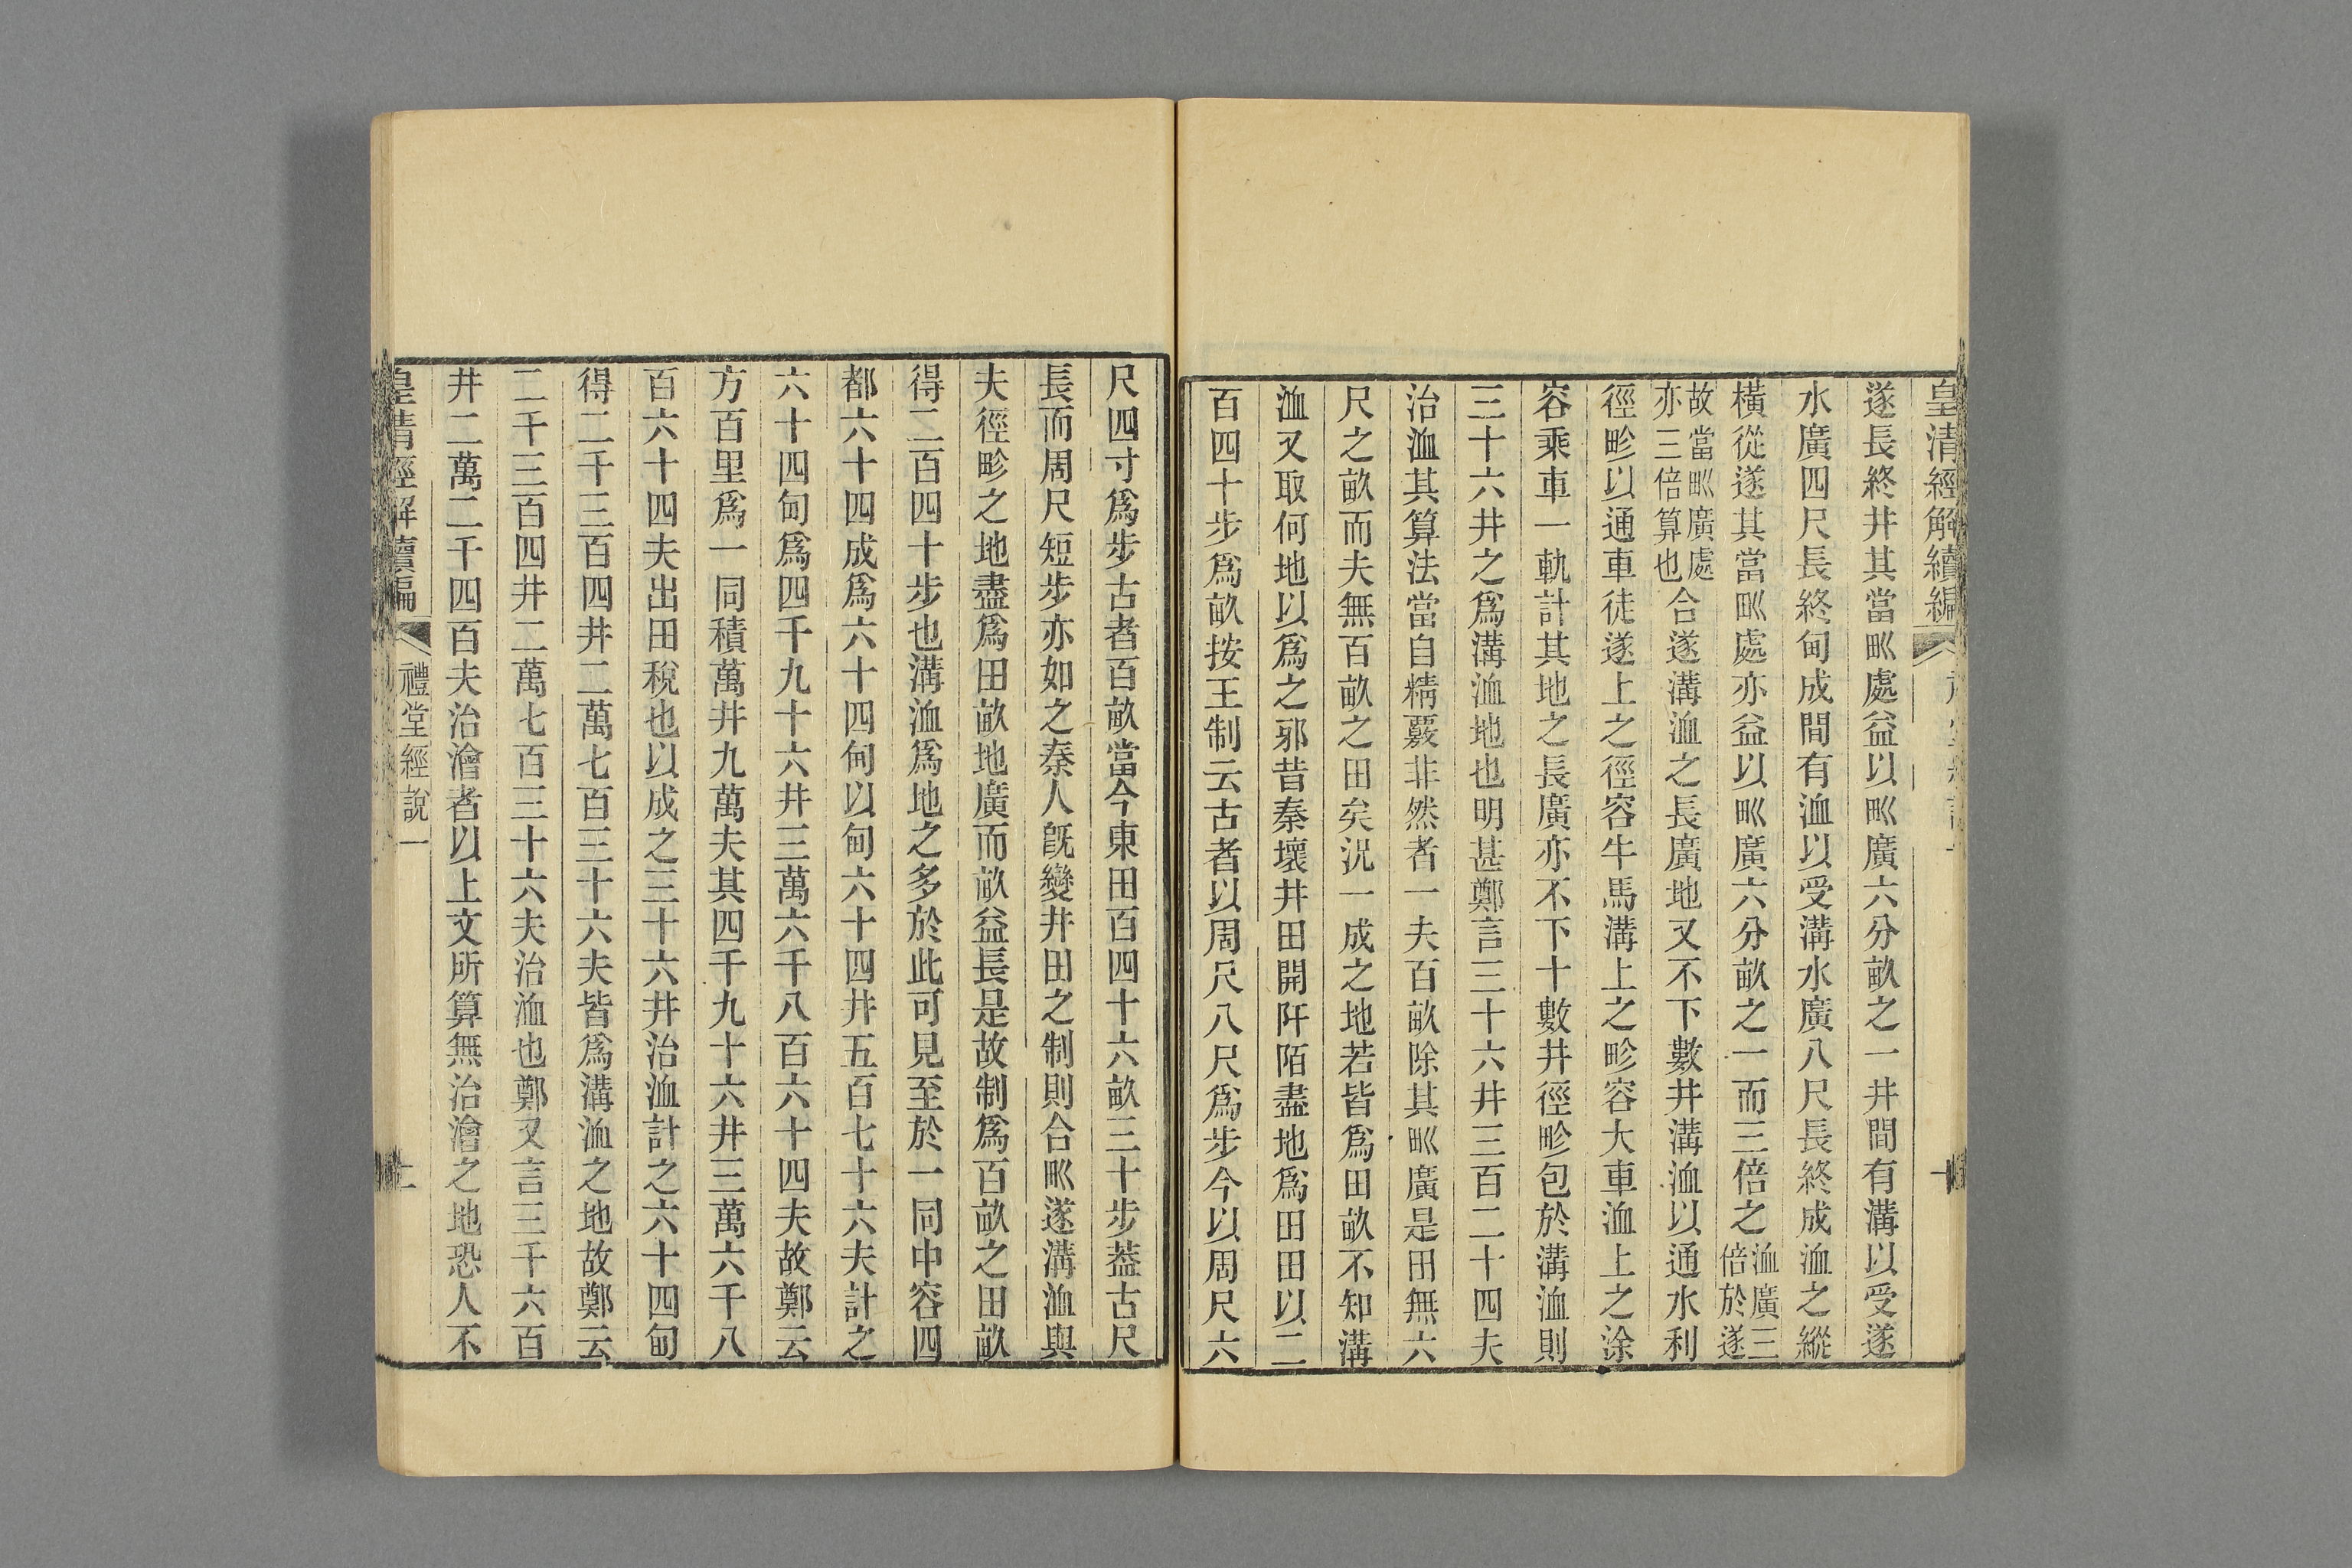 皇清經解續編
遂長終井其當甽處益以甽廣六分畝之一井間有溝以受遂
水廣四尺長終甸成間有洫以受溝水廣八尺長終成洫之縱
橫從遂其當甽處亦益以甽廣六分畝之一而三倍之洫廣三倍於遂
故當甽廣處亦三倍算也合遂溝洫之長廣地又不下數井溝洫以通水利
徑畛以通車徒遂上之徑容牛馬溝上之畛容大車洫上之涂
容乘車一軌計其地之長廣亦不下十數井徑畛包於溝洫則
三十六井之爲溝洫地也明甚鄭言三十六井三百二十四夫
治洫其算法當自精覈非然者一夫百畝除其甽廣是田無六
尺之畝而夫無百畝之田矣況一成之地若皆爲田畝不知溝
洫又取何地以爲之邪昔秦壞井田開阡陌盡地爲田田以二
百四十步爲畝按王制云古者以周尺八尺爲步今以周尺六
尺四寸爲步古者百畝當今東田百四十六畝三十步葢古尺
長而周尺短步亦如之秦人旣變井田之制則合甽遂溝洫與
夫徑畛之地盡爲田畝地廣而畝益長是故制爲百畝之田畝
得二百四十步也溝洫爲地之多於此可見至於一同中容四
都六十四成爲六十四甸以甸六十四井五百七十六夫計之
六十四甸爲四千九十六井三萬六千八百六十四夫故鄭云
方百里爲一同積萬井九萬夫其四千九十六井三萬六千八
百六十四夫出田稅也以成之三十六井治洫計之六十四甸
得二千三百四井二萬七百三十六夫皆爲溝洫之地故鄭云
二千三百四井二萬七百三十六夫治洫也鄭又言三千六百
井二萬二千四百夫治澮者以上文所算無治澮之地恐人不
皇清經解續編 禮堂經說一